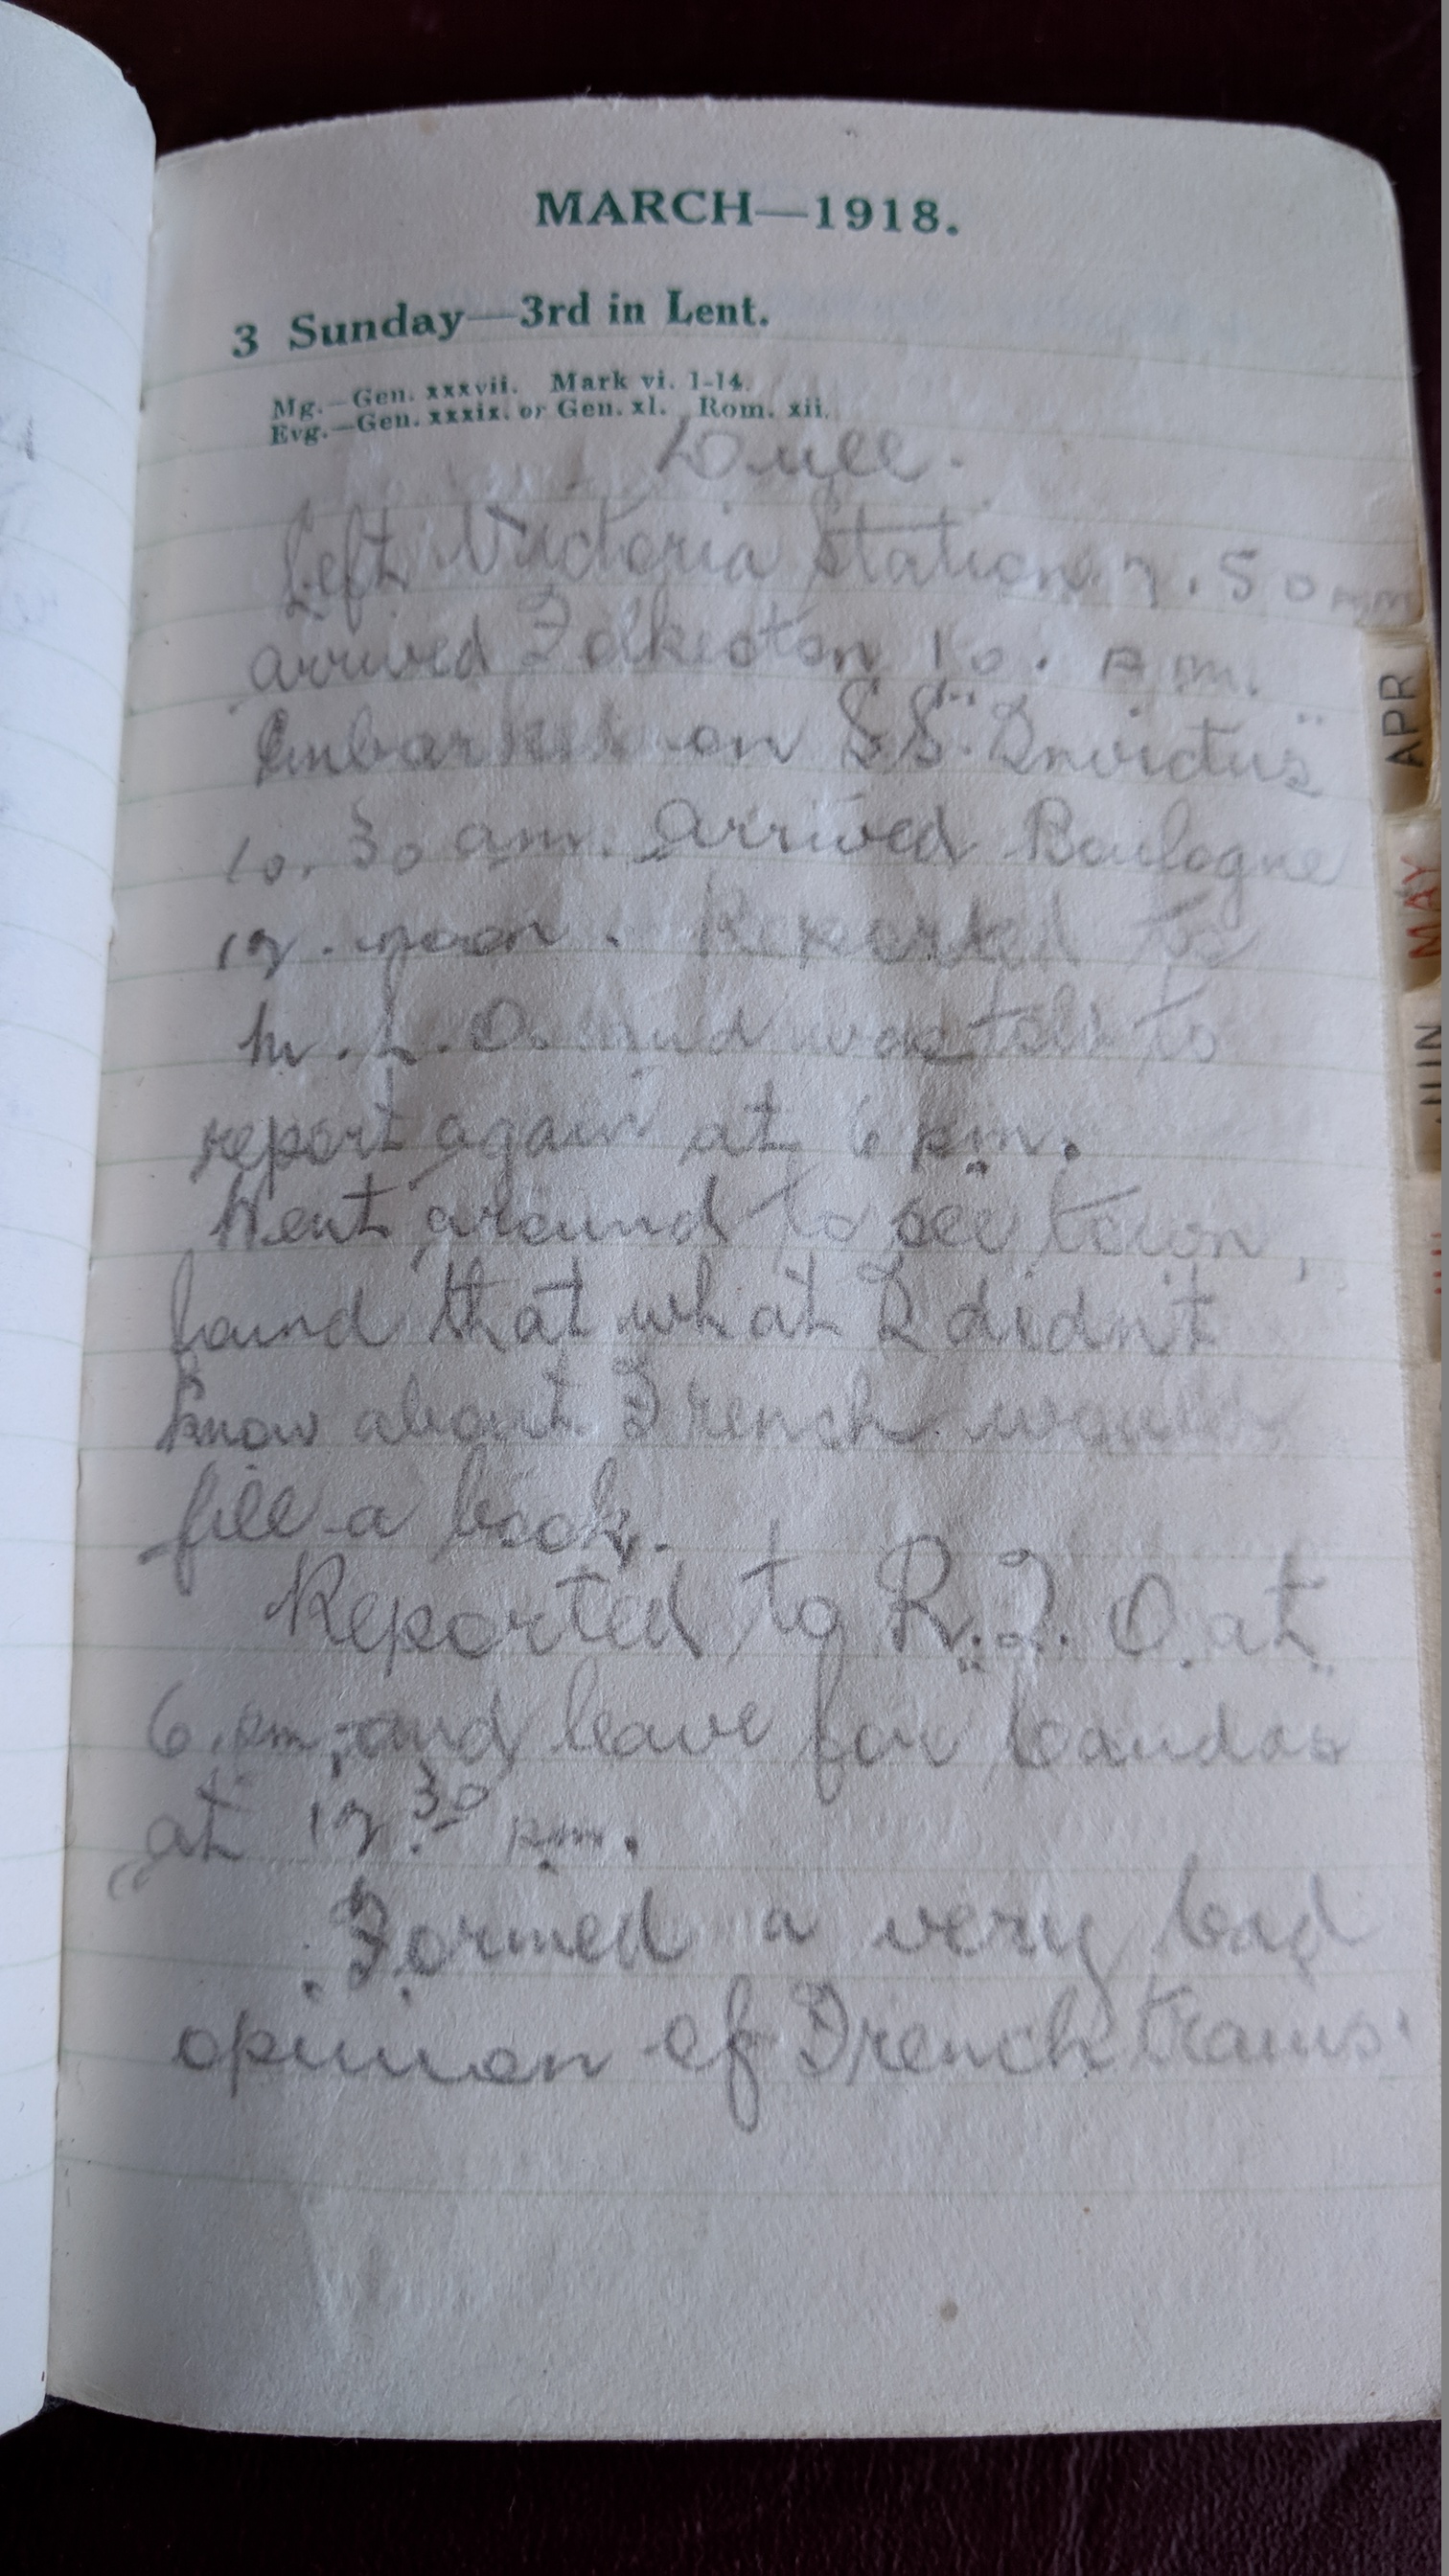 MARCH—1918.
3 Sunday—3rd in Lent.
Mg.—Gen. xxxvii. Mark vi. 1-14.
Evg.—Gen. xxxix. or Gen. xl. Rom. xii.
Dull.
Left Victoria Station 7.50 am
arrived Folkeston 10. a m.
Embarked on S.S. "Invictus"
10.30 am. Arrived Boulogne
12. noon. Reported to
M.L.O. and was told to
report again at 6 pm.
Went around to see town,
found that what I didn't
know about French would
fill a book.
Reported to R.T.O. at
6. pm, and leave for Candas
at 12.30 pm.
Formed a very bad
opinion of French trains.
APR
MAY
JUN